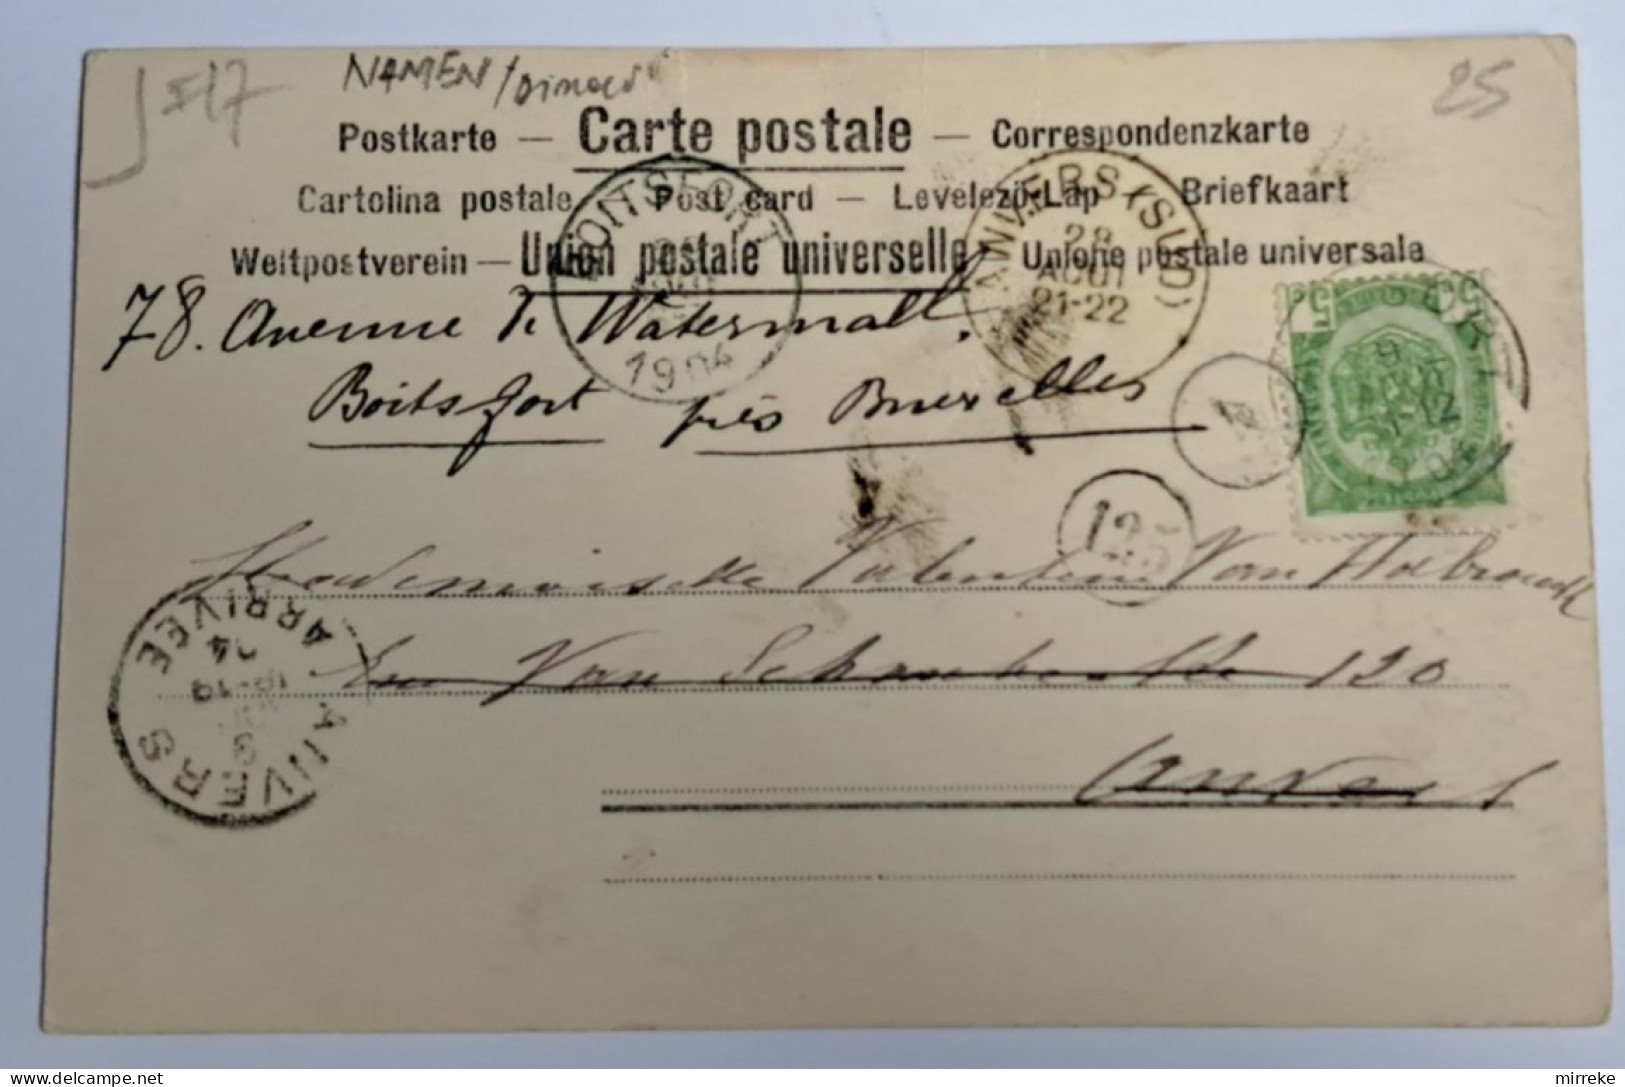 J I17
NAMEN/Dinant
25
Postkarte — Carte postale — Correspondenzkarte
Cartolina postale Post card — Levelezö-Lap Briefkaart
Weltpostverein — Union postale universelle Unione postale universale
BOITSFORT
1904
ANVERS (SUD)
28
AOUT
21-22
78. Avenue de Watermall,
Boitsfort près Bruxelles
5 5
12
Mademoiselle Valentine Van
Rue Van 120
Anvers
ANVERS ARRIVÉE
9
18-19
04
mirreke